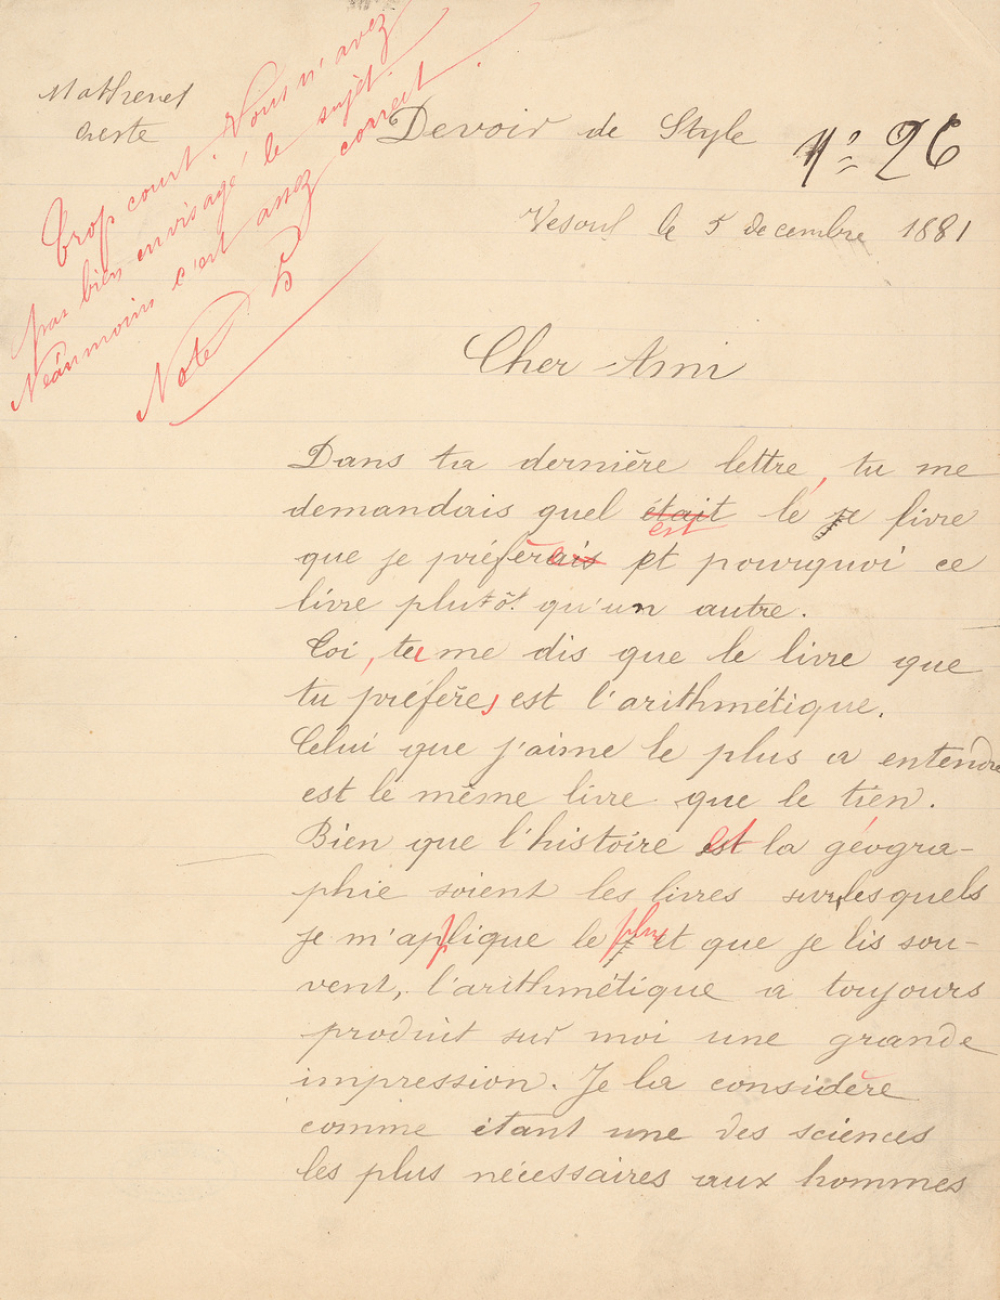 Mathenet
Trop court. Vous n'avez
pas bien envisagé le sujet
Néanmoins c'est assez correct.
Note 5
Devoir de Style
N° 26
Vesoul le 5 decembre 1881
Cher Ami
Dans ta dernière lettre, tu me
demandais quel était est le livre
que je préférais et pourquoi ce
livre plutôt qu'un autre.
Toi, tu me dis que le livre que
tu préfères est l'arithmétique.
Celui que j'aime le plus a entendre
est le même livre que le tien.
Bien que l'histoire et la géogra-
phie soient les livres sur lesquels
je m'applique le plus et que je lis sou-
vent, l'arithmétique a toujours
produit sur moi une grande
impression. Je la considère
comme étant une des sciences
les plus nécessaires aux hommes